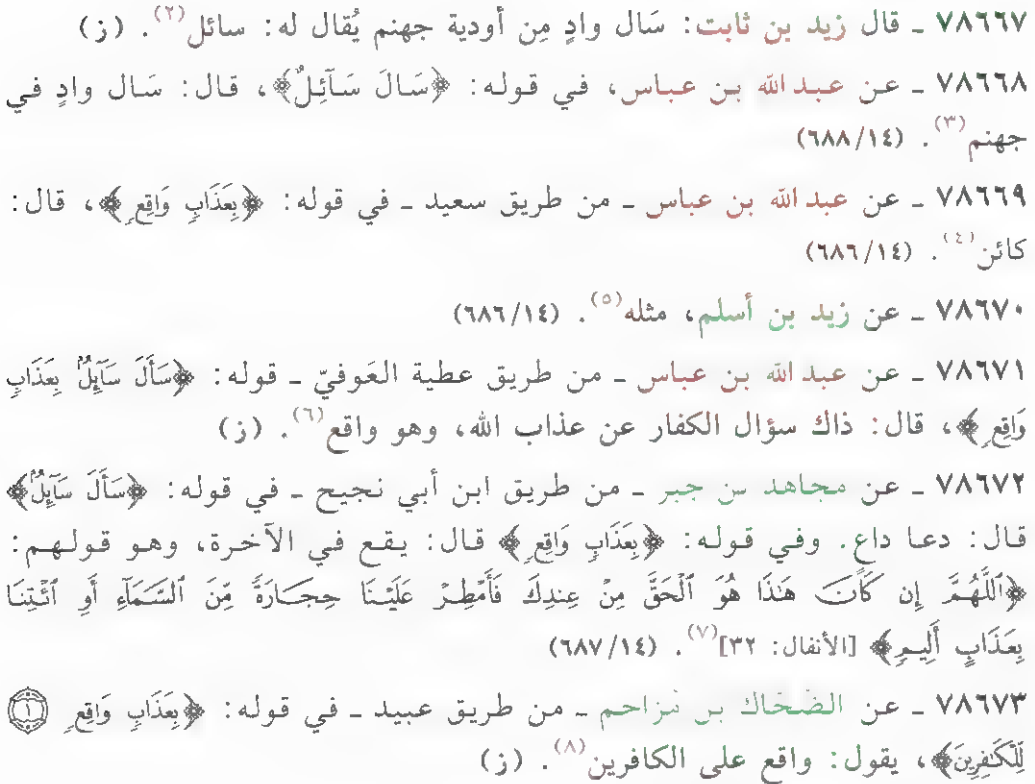 ٧٨٦٦٧ ـ قال زيد بن ثابت: سَال وادٍ مِن أودية جهنم يُقال له: سائل(٢). (ز)
٧٨٦٦٨ ـ عن عبد الله بن عباس، في قوله: ﴿سَالَ سَآئِلٌ﴾، قال: سَال وادٍ في
جهنم(٣). (١٤/ ٦٨٨)
٧٨٦٦٩ ـ عن عبد الله بن عباس ـ من طريق سعيد ـ في قوله: ﴿بِعَذَابٍ وَاقِعٍ﴾، قال:
كائن(٤). (١٤/ ٦٨٦)
٧٨٦٧٠ ـ عن زيد بن أسلم، مثله(٥). (١٤/ ٦٨٦)
٧٨٦٧١ ـ عن عبد الله بن عباس ـ من طريق عطية العَوفيّ ـ قوله: ﴿سَأَلَ سَآئِلٌۢ بِعَذَابٍ
وَاقِعٍ﴾، قال: ذاك سؤال الكفار عن عذاب الله، وهو واقع(٦). (ز)
٧٨٦٧٢ ـ عن مجاهد بن جبر ـ من طريق ابن أبي نجيح ـ في قوله: ﴿سَأَلَ سَآئِلٌۢ﴾
قال: دعا داعٍ. وفي قوله: ﴿بِعَذَابٍ وَاقِعٍ﴾ قال: يقع في الآخرة، وهو قولهم:
﴿ٱللَّهُمَّ إِن كَانَ هَٰذَا هُوَ ٱلْحَقَّ مِنْ عِندِكَ فَأَمْطِرْ عَلَيْنَا حِجَارَةً مِّنَ ٱلسَّمَآءِ أَوِ ٱئْتِنَا
بِعَذَابٍ أَلِيمٍ﴾ [الأنفال: ٣٢](٧). (١٤/ ٦٨٧)
٧٨٦٧٣ ـ عن الضحاك بن مُزاحم ـ من طريق عبيد ـ في قوله: ﴿بِعَذَابٍ وَاقِعٍ ۝١
لِّلْكَٰفِرِينَ﴾، يقول: واقع على الكافرين(٨). (ز)